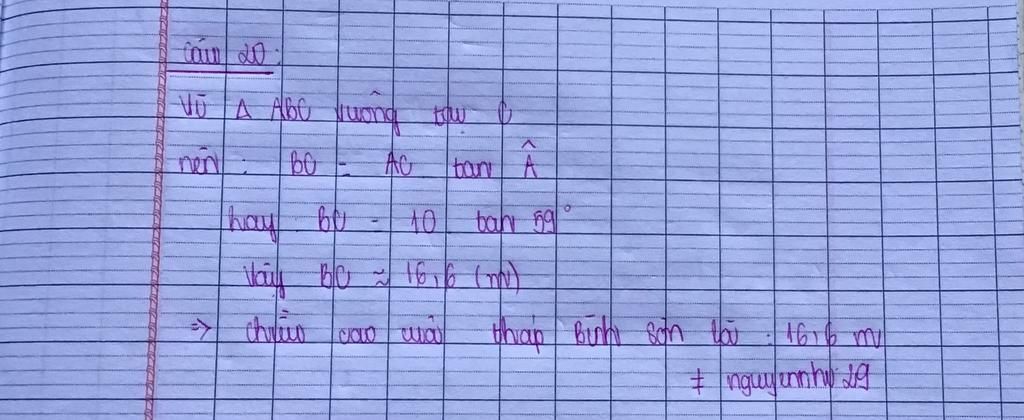 Câu 20:
Vì Δ ABC vuông tại C
nên: BC = AC tan Â
hay BC = 10 tan 59°
Vậy BC ≈ 16,6 (m)
=> chiều cao của tháp Bình Sơn là: 16,6 m
≠ nguyennhu 29